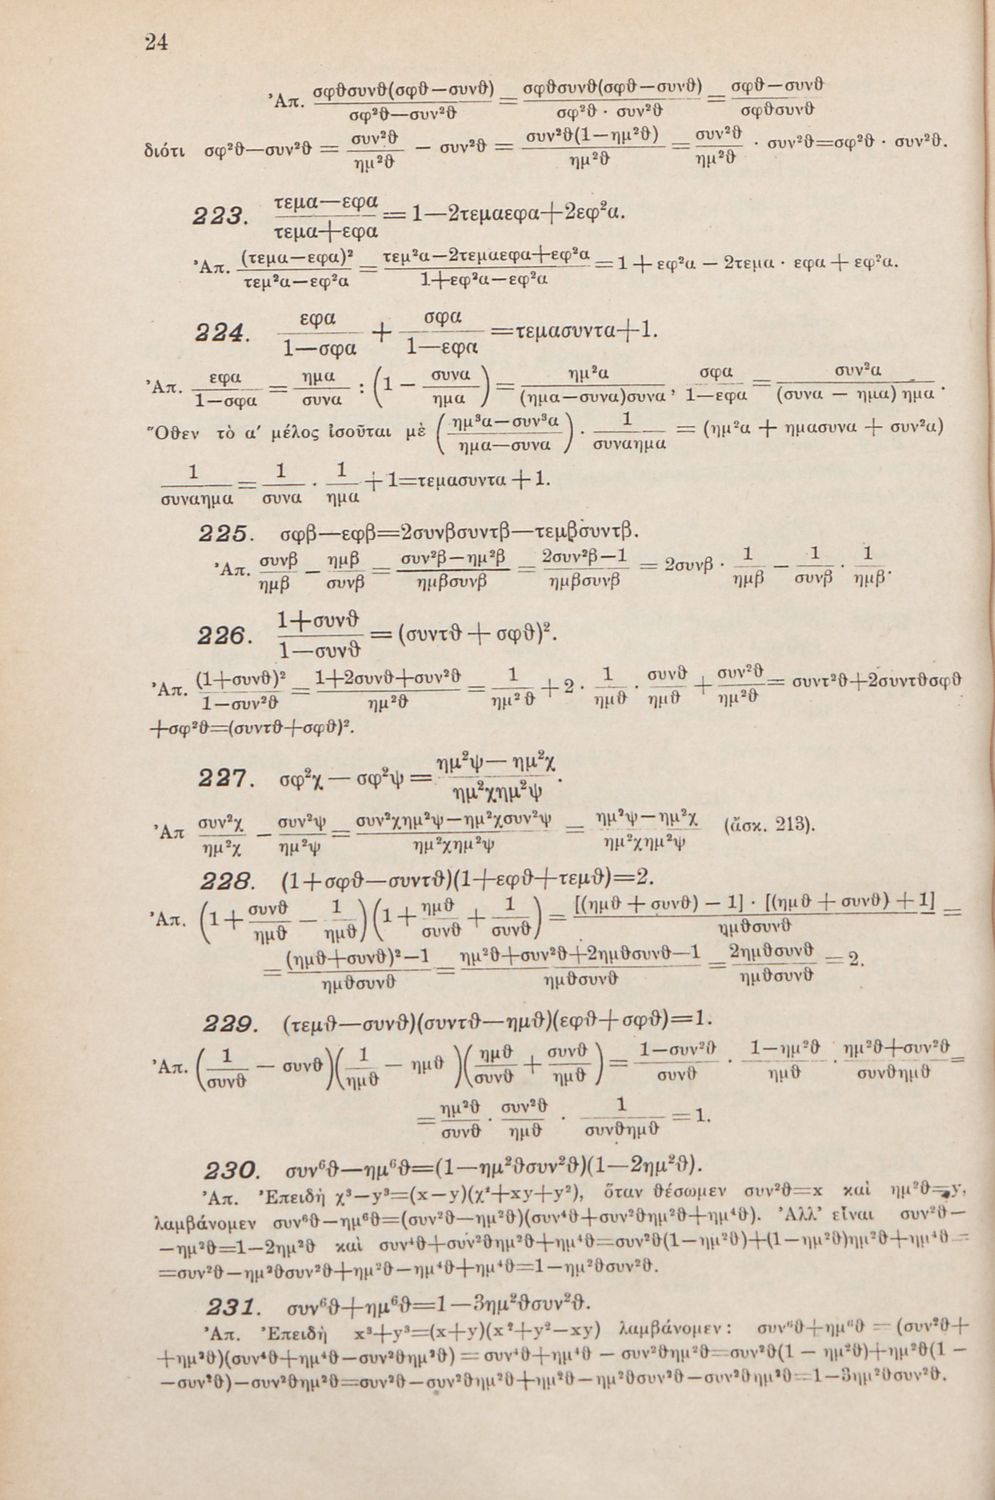 24
Ἀπ. σφθσυνθ(σφθ—συνθ)/σφ²θ—συν²θ = σφθσυνθ(σφθ—συνθ)/σφ²θ · συν²θ = σφθ—συνθ/σφθσυνθ
διότι σφ²θ—συν²θ = συν²θ/ημ²θ — συν²θ = συν²θ(1—ημ²θ)/ημ²θ = συν²θ/ημ²θ · συν²θ=σφ²θ · συν²θ.
223. τεμα—εφα/τεμα+εφα = 1—2τεμαεφα+2εφ²α.
Ἀπ. (τεμα—εφα)²/τεμ²α—εφ²α = τεμ²α—2τεμαεφα+εφ²α/1+εφ²α—εφ²α = 1 + εφ²α — 2τεμα · εφα + εφ²α.
224. εφα/1—σφα + σφα/1—εφα =τεμασυντα+1.
Ἀπ. εφα/1—σφα = ημα/συνα : (1 — συνα/ημα) = ημ²α/(ημα—συνα)συνα, σφα/1—εφα = συν²α/(συνα — ημα) ημα.
Ὅθεν τὸ α′ μέλος ἰσοῦται μὲ (ημ³α—συν³α/ημα—συνα) · 1/συναημα = (ημ²α + ημασυνα + συν²α)
1/συναημα = 1/συνα · 1/ημα + 1=τεμασυντα + 1.
225. σφβ—εφβ=2συνβσυντβ—τεμβσυντβ.
Ἀπ. συνβ/ημβ — ημβ/συνβ = συν²β—ημ²β/ημβσυνβ = 2συν²β—1/ημβσυνβ = 2συνβ · 1/ημβ — 1/συνβ · 1/ημβ.
226. 1+συνθ/1—συνθ = (συντθ + σφθ)².
Ἀπ. (1+συνθ)²/1—συν²θ = 1+2συνθ+συν²θ/ημ²θ = 1/ημ²θ + 2 · 1/ημθ · συνθ/ημθ + συν²θ/ημ²θ = συντ²θ+2συντθσφθ
+σφ²θ=(συντθ+σφθ)².
227. σφ²χ — σφ²ψ = ημ²ψ— ημ²χ/ημ²χημ²ψ.
Ἀπ συν²χ/ημ²χ — συν²ψ/ημ²ψ = συν²χημ²ψ—ημ²χσυν²ψ/ημ²χημ²ψ = ημ²ψ—ημ²χ/ημ²χημ²ψ (ἄσκ. 213).
228. (1+σφθ—συντθ)(1+εφθ+τεμθ)=2.
Ἀπ. (1+ συνθ/ημθ — 1/ημθ)(1+ ημθ/συνθ + 1/συνθ) = [(ημθ + συνθ) — 1] · [(ημθ + συνθ) + 1]/ημθσυνθ =
= (ημθ+συνθ)²—1/ημθσυνθ = ημ²θ+συν²θ+2ημθσυνθ—1/ημθσυνθ = 2ημθσυνθ/ημθσυνθ = 2.
229. (τεμθ—συνθ)(συντθ—ημθ)(εφθ+σφθ)=1.
Ἀπ. (1/συνθ — συνθ)(1/ημθ — ημθ)(ημθ/συνθ + συνθ/ημθ) = 1—συν²θ/συνθ · 1—ημ²θ/ημθ · ημ²θ+συν²θ/συνθημθ =
= ημ²θ/συνθ · συν²θ/ημθ · 1/συνθημθ = 1.
230. συν⁶θ—ημ⁶θ=(1—ημ²θσυν²θ)(1—2ημ²θ).
Ἀπ. Ἐπειδὴ χ³—y³=(x—y)(χ²+xy+y²), ὅταν θέσωμεν συν²θ=x καὶ ημ²θ=y,
λαμβάνομεν συν⁶θ—ημ⁶θ=(συν²θ—ημ²θ)(συν⁴θ+συν²θημ²θ+ημ⁴θ). Ἀλλ' εἶναι συν²θ—
—ημ²θ=1—2ημ²θ καὶ συν⁴θ+συν²θημ²θ+ημ⁴θ=συν²θ(1—ημ²θ)+(1—ημ²θ)ημ²θ+ημ⁴θ =
=συν²θ—ημ²θσυν²θ+ημ²θ—ημ⁴θ+ημ⁴θ=1—ημ²θσυν²θ.
231. συν⁶θ+ημ⁶θ=1—3ημ²θσυν²θ.
Ἀπ. Ἐπειδὴ x³+y³=(x+y)(x²+y²—xy) λαμβάνομεν: συν⁶θ+ημ⁶θ = (συν²θ+
+ημ²θ)(συν⁴θ+ημ⁴θ—συν²θημ²θ) = συν⁴θ+ημ⁴θ — συν²θημ²θ=συν²θ(1 — ημ²θ)+ημ²θ(1 —
—συν²θ)—συν²θημ²θ=συν²θ—συν²θημ²θ+ημ²θ—ημ²θσυν²θ—συν²θημ²θ=1—3ημ²θσυν²θ.